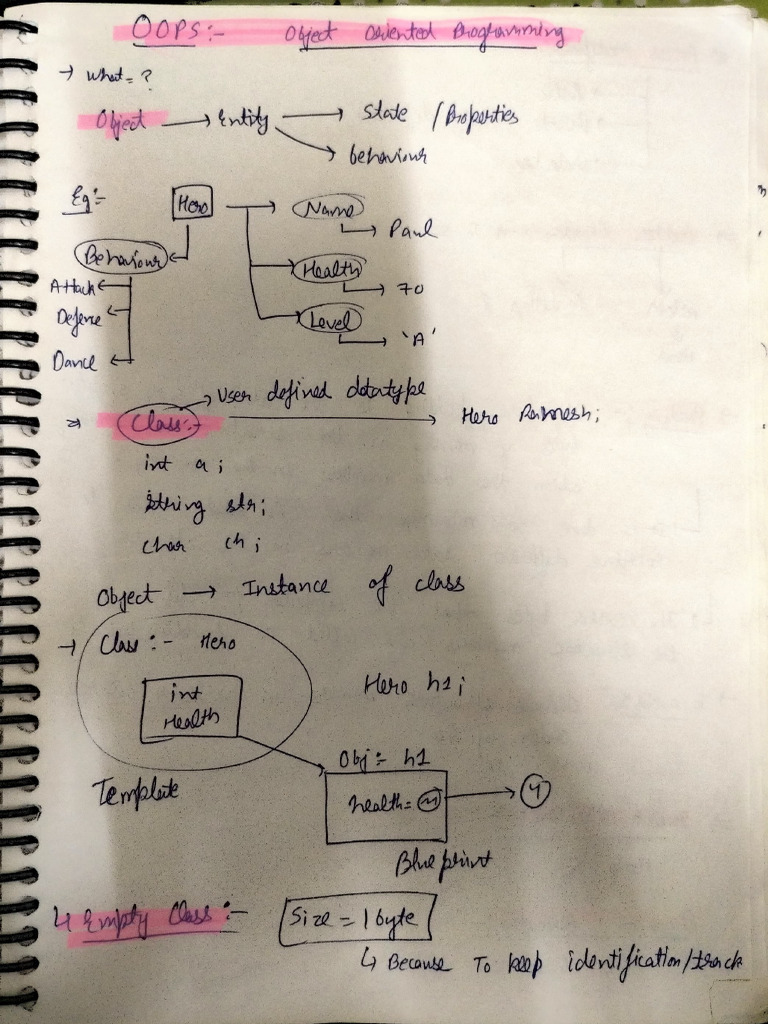 OOPS:- Object Oriented Programming
→ What = ?
Object → Entity → State / Properties
→ behaviour
Eg:- Hero → Name
→ Paul
Behaviour
Health
Attack
→ 70
Defense
Level
→ 'A'
Dance
→ User defined datatype
⇒ Class:- → Hero Ramesh;
int a ;
string str;
char ch ;
Object → Instance of class
→ Class :- Hero
int
Health
Hero h1;
Obj :- h1
Template
health =
→ 4
Blueprint
↳ Empty Class :- Size = 1 byte
↳ Because To keep identification/track